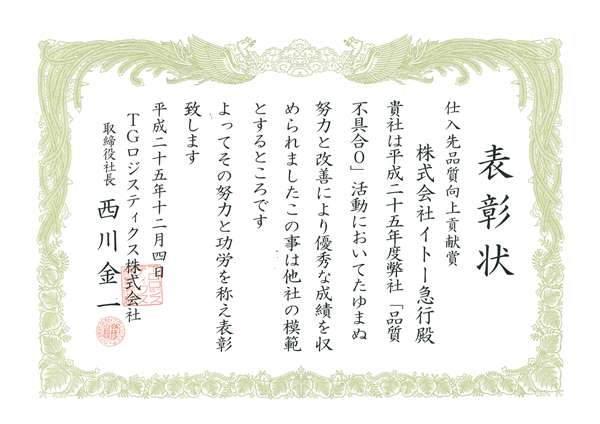 表彰状
仕入先品質向上貢献賞
株式会社イトー急行殿
貴社は平成二十五年度弊社「品質
不具合０」活動においてたゆまぬ
努力と改善により優秀な成績を収
められましたこの事は他社の模範
とするところです
よってその努力と功労を称え表彰
致します
平成二十五年十二月四日
ＴＧロジスティクス株式会社
取締役社長 西川金一